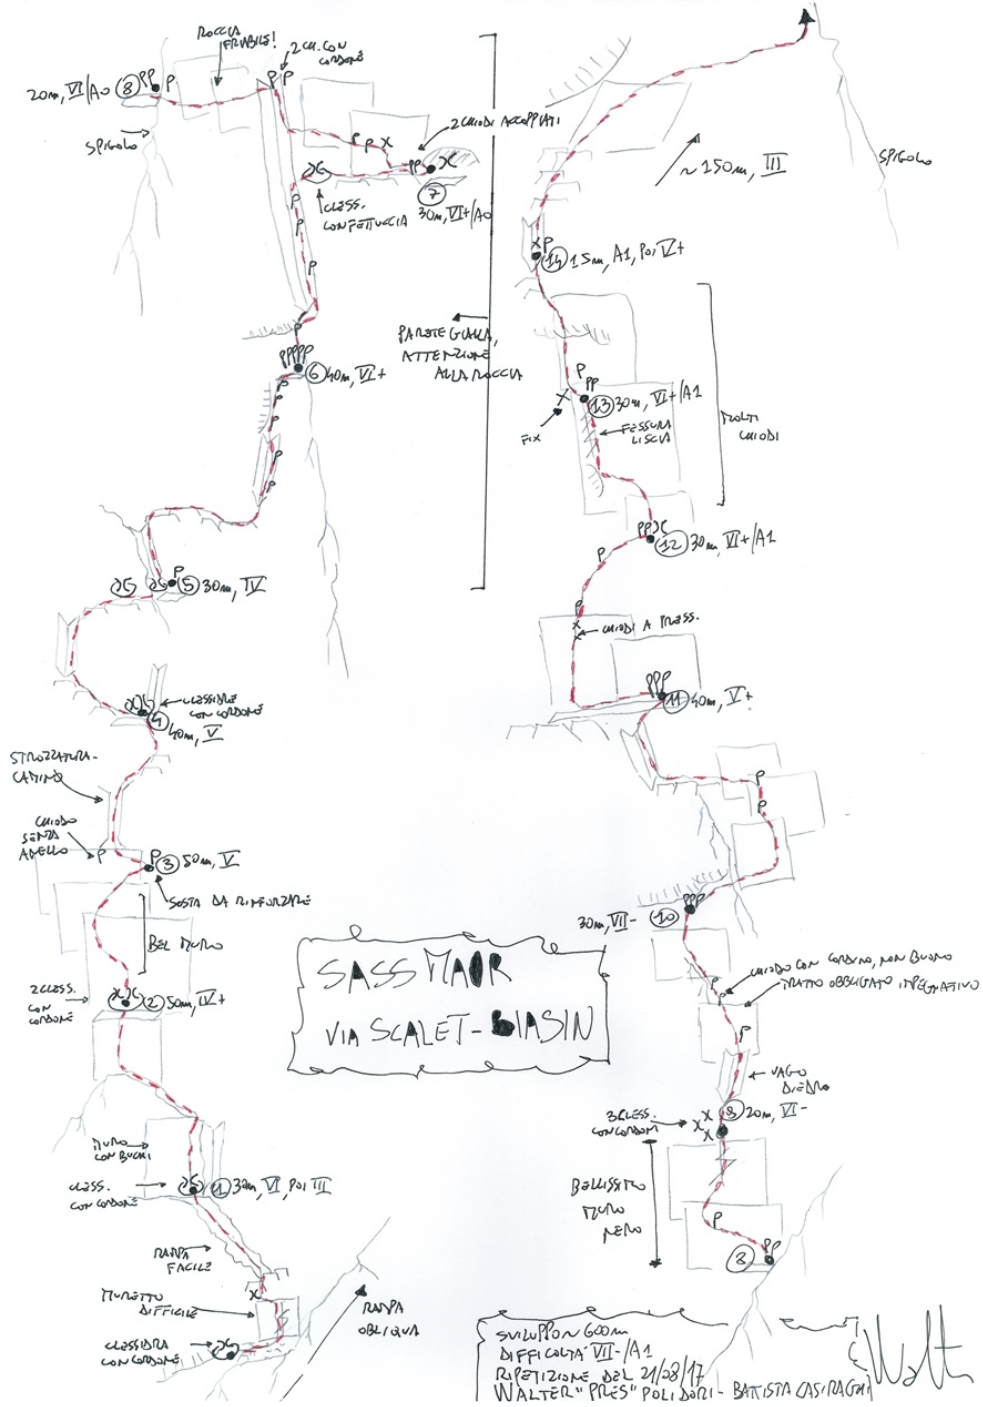 ROCCIA
FRIABILE!
2 CH. CON
CORDONE
20m, VI/A0 8 PP P
P P
SPIGOLO
P P X
2 CHIODI ACCOPPIATI
PP
7
30m, VI+/A0
CLESS.
CON FETTUCCIA
P
P
P
P
PPPPP
6 40m, VI+
P
P
P
PARETE GIALLA,
ATTENZIONE
ALLA ROCCIA
P
5 30m, IV
CLESSIDRE
CON CORDONE
4
40m, V
STROZZATURA-
CAMINO
CHIODO
SENZA
ANELLO
P
P
3 50m, V
SOSTA DA RINFORZARE
BEL MURO
2 CLESS.
CON
CORDONE
2 50m, IV+
MURO
CON BUCHI
CLESS.
CON CORDONE
1 30m, VI, POI III
RAMPA
FACILE
X
MURETTO
DIFFICILE
CLESSIDRA
CON CORDONE
RAMPA
OBLIQUA
SPIGOLO
~150m, III
X P
14 15m, A1, POI V+
P
PP
13 30m, VI+/A1
FIX
X
FESSURA
LISCIA
MOLTI
CHIODI
PP
12 30m, VI+/A1
P
P
X
X
CHIODI A PRESS.
PPP
11 40m, V+
P
P
PPP
30m, VII- 10
CHIODO CON CORDINO, NON BUONO
TRATTO OBBLIGATO IMPEGNATIVO
P
P
P
VAGO
DIEDRO
9 20m, VI-
3 CLESS.
CON CORDONI
X
X
X
BELLISSIMO
MURO
NERO
P
PP
8
SASS MAOR
VIA SCALET-BIASIN
SVILUPPO ~ 600m
DIFFICOLTA' VII-/A1
RIPETIZIONE DEL 21/08/17
WALTER "PRES" POLIDORI - BATTISTA CASIRAGHI